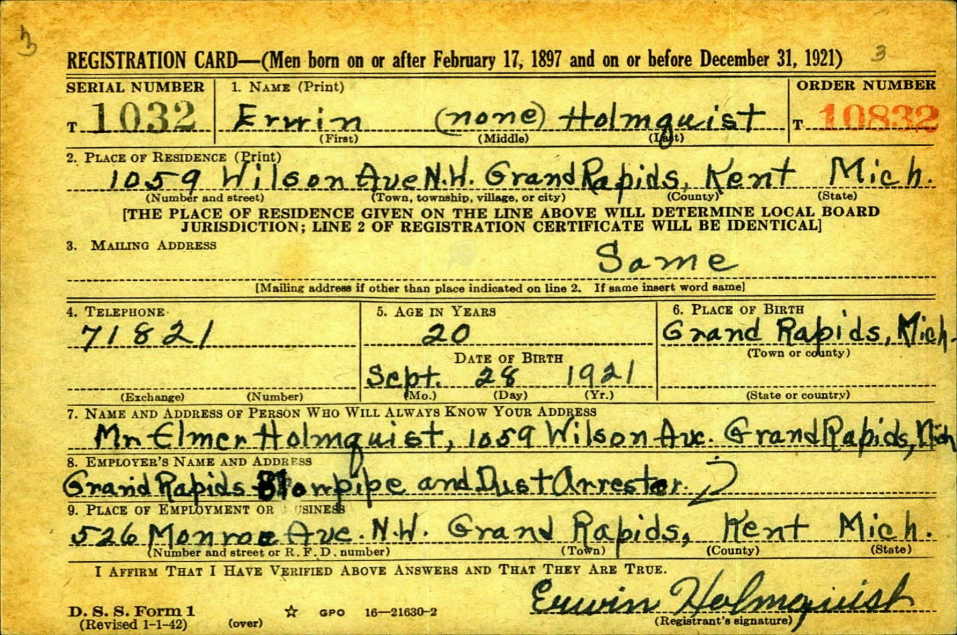 3
REGISTRATION CARD—(Men born on or after February 17, 1897 and on or before December 31, 1921) 3
SERIAL NUMBER 1. NAME (Print) ORDER NUMBER
T 1032 Erwin (none) Holmquist T 10832
(First) (Middle) (Last)
2. PLACE OF RESIDENCE (Print)
1059 Wilson Ave N.W. Grand Rapids, Kent Mich.
(Number and street) (Town, township, village, or city) (County) (State)
[THE PLACE OF RESIDENCE GIVEN ON THE LINE ABOVE WILL DETERMINE LOCAL BOARD
JURISDICTION; LINE 2 OF REGISTRATION CERTIFICATE WILL BE IDENTICAL]
3. MAILING ADDRESS
Same
[Mailing address if other than place indicated on line 2. If same insert word same]
4. TELEPHONE 5. AGE IN YEARS 6. PLACE OF BIRTH
71821 20 Grand Rapids, Mich.
DATE OF BIRTH (Town or county)
Sept. 28 1921
(Exchange) (Number) (Mo.) (Day) (Yr.) (State or country)
7. NAME AND ADDRESS OF PERSON WHO WILL ALWAYS KNOW YOUR ADDRESS
Mr Elmer Holmquist, 1059 Wilson Ave. Grand Rapids, Mich
8. EMPLOYER'S NAME AND ADDRESS
Grand Rapids Blowpipe and Dust Arrester
9. PLACE OF EMPLOYMENT OR BUSINESS
526 Monroe Ave. N.W. Grand Rapids, Kent Mich.
(Number and street or R. F. D. number) (Town) (County) (State)
I AFFIRM THAT I HAVE VERIFIED ABOVE ANSWERS AND THAT THEY ARE TRUE.
D. S. S. Form 1 ☆ GPO 16—21630-2 Erwin Holmquist
(Revised 1-1-42) (over) (Registrant's signature)